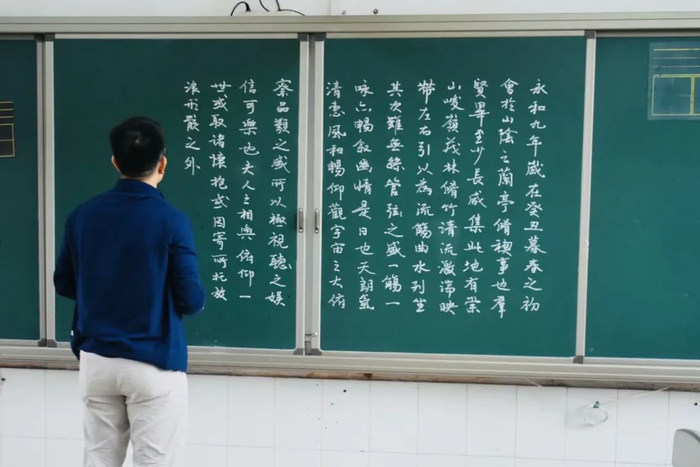 永和九年歲在癸丑暮春之初
會於山陰之蘭亭脩禊事也羣
賢畢至少長咸集此地有崇
山峻嶺茂林脩竹清流激湍映
帶左右引以為流觴曲水列坐
其次雖無絲管弦之盛一觴一
咏亦暢敘幽情是日也天朗氣
清惠風和暢仰觀宇宙之大俯
察品類之盛可以極視聽之娛
信可樂也夫人之相與俯仰一
世或取諸懷抱或因寄所托放
浪形骸之外